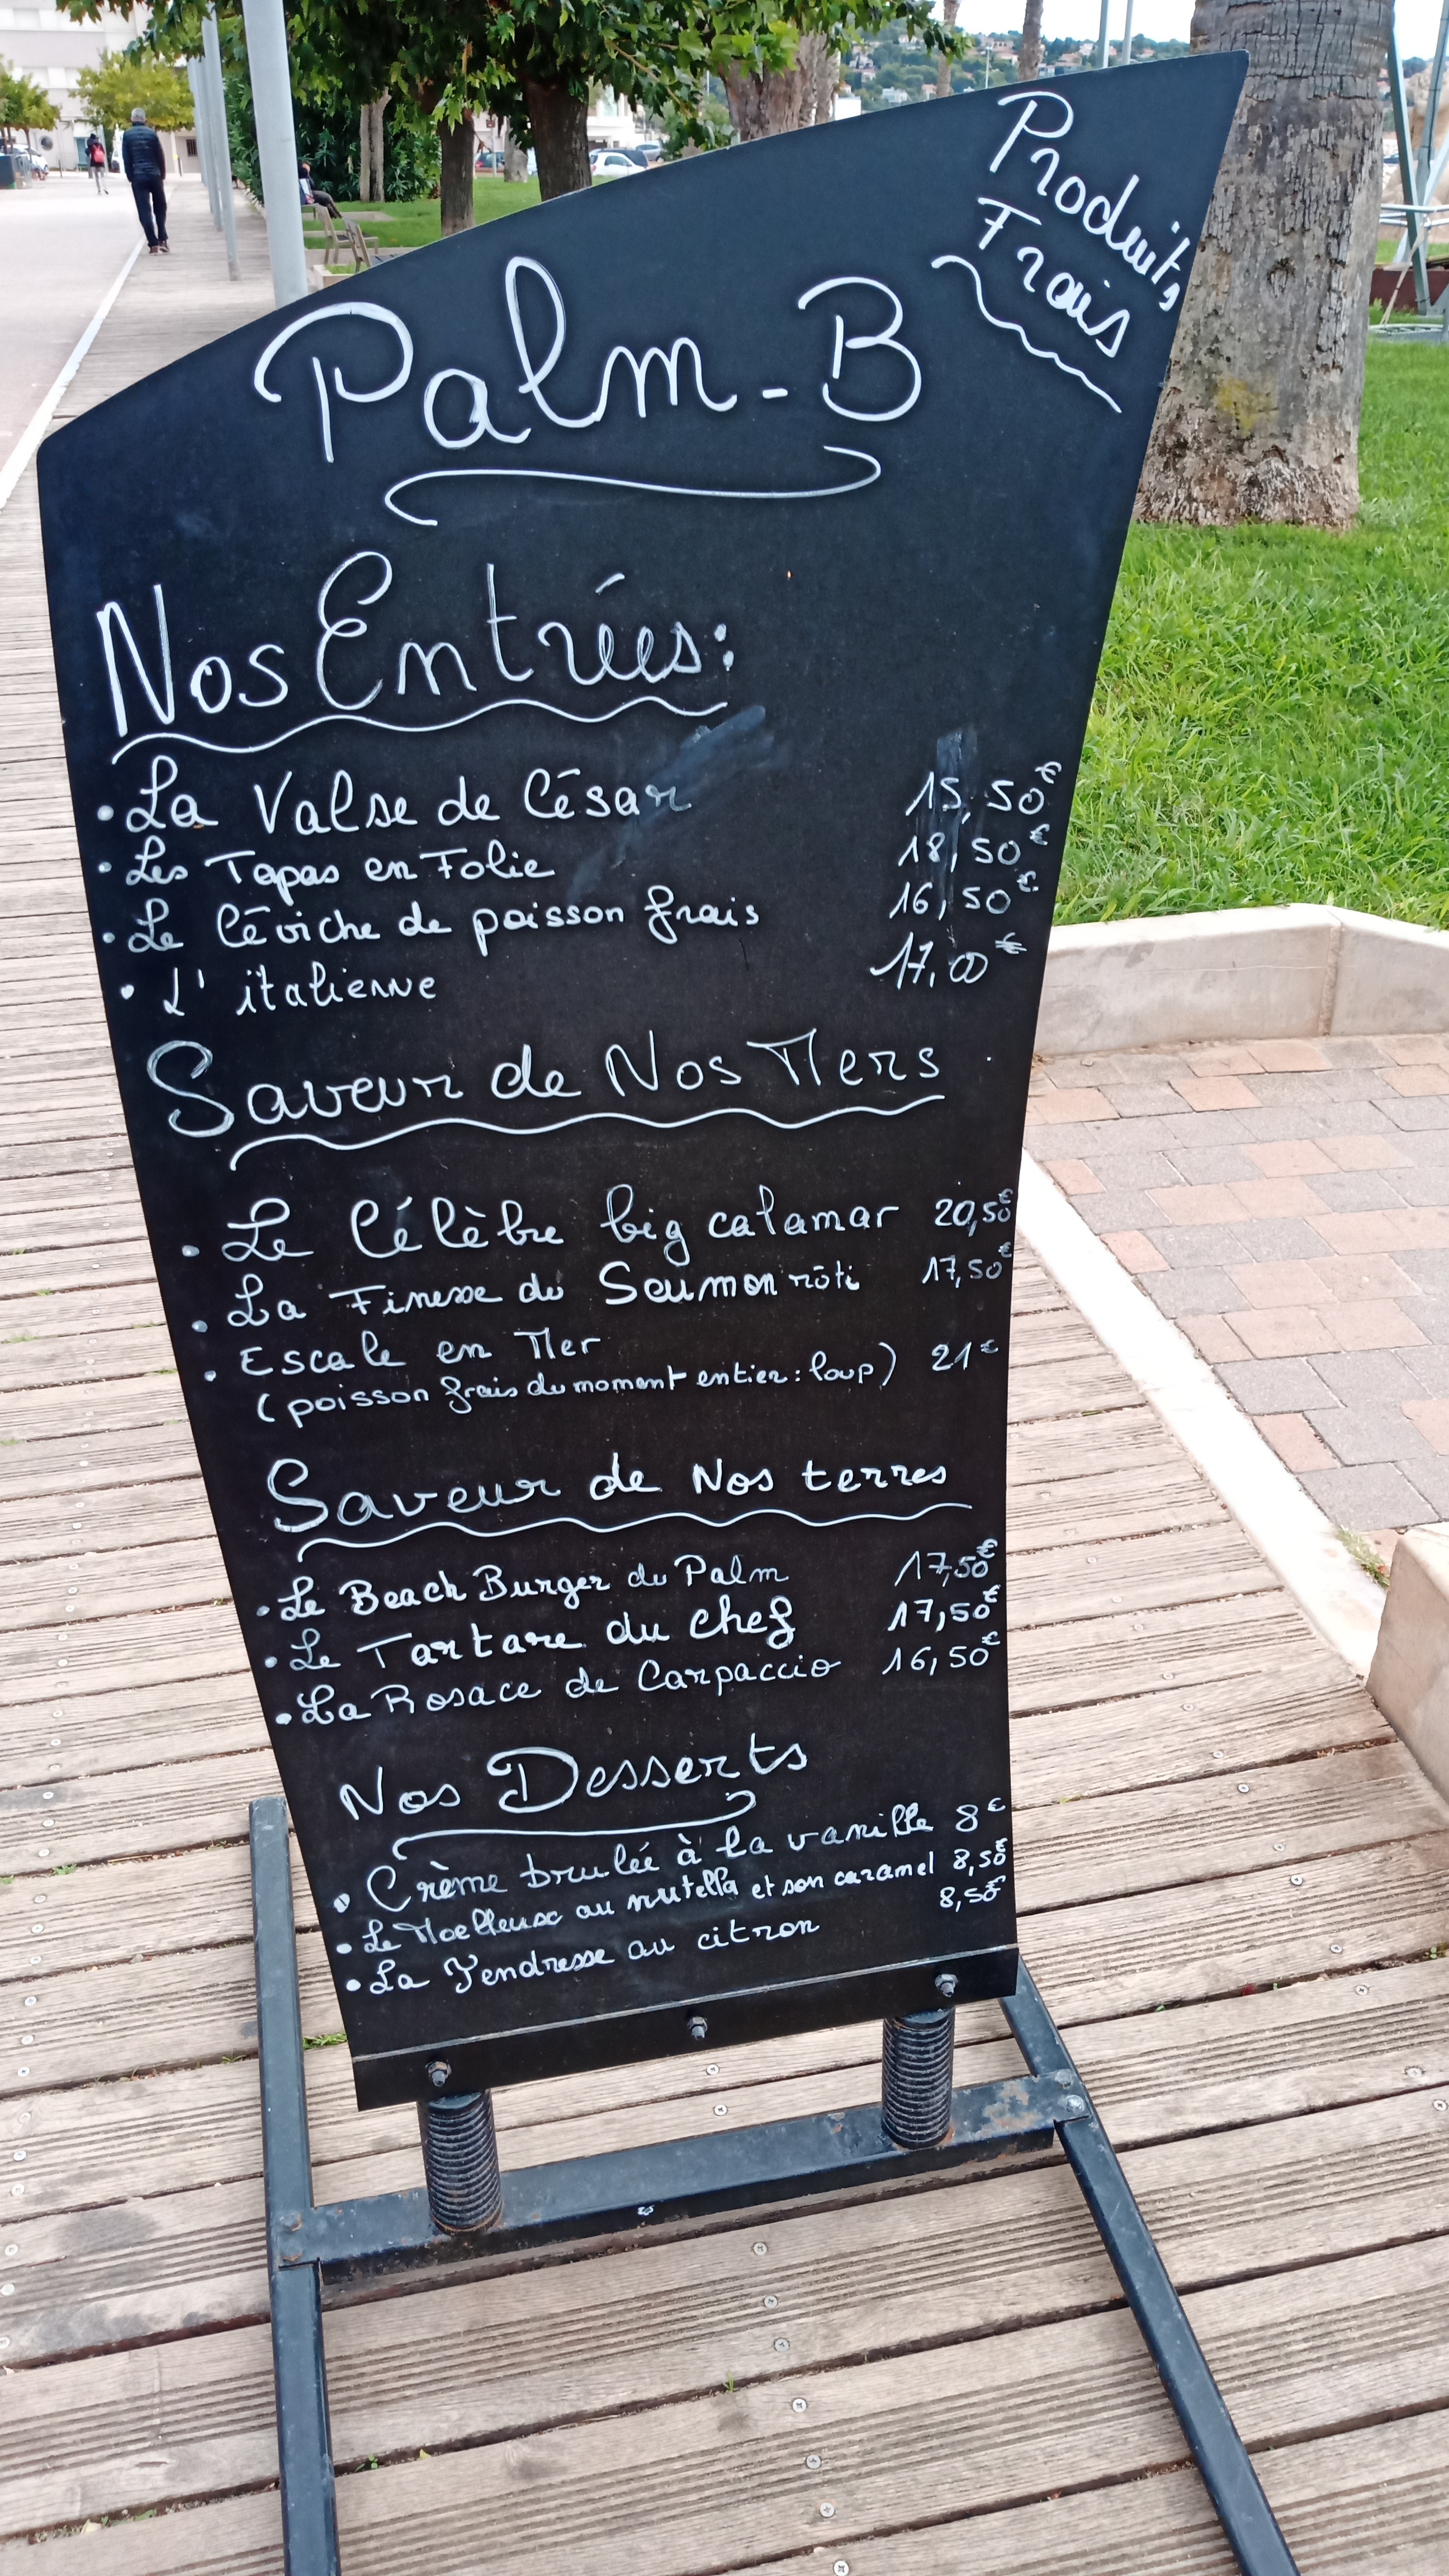 Produits
Frais
Palm-B
Nos Entrées:
• La Valse de César 15,50€
• Les Tapas en Folie 18,50€
• Le Céviche de poisson frais 16,50€
• L'italienne 17,00€
Saveur de Nos Mers
• Le Célèbre big calamar 20,50€
• La Finesse du Saumon rôti 17,50€
• Escale en Mer
(poisson frais du moment entier: loup) 21€
Saveur de Nos terres
• Le Beach Burger du Palm 17,50€
• Le Tartare du chef 17,50€
• La Rosace de Carpaccio 16,50€
Nos Desserts
• Crème brulée à la vanille 8€
• Le Moelleuse au nutella et son caramel 8,50€
• La Tendresse au citron 8,50€